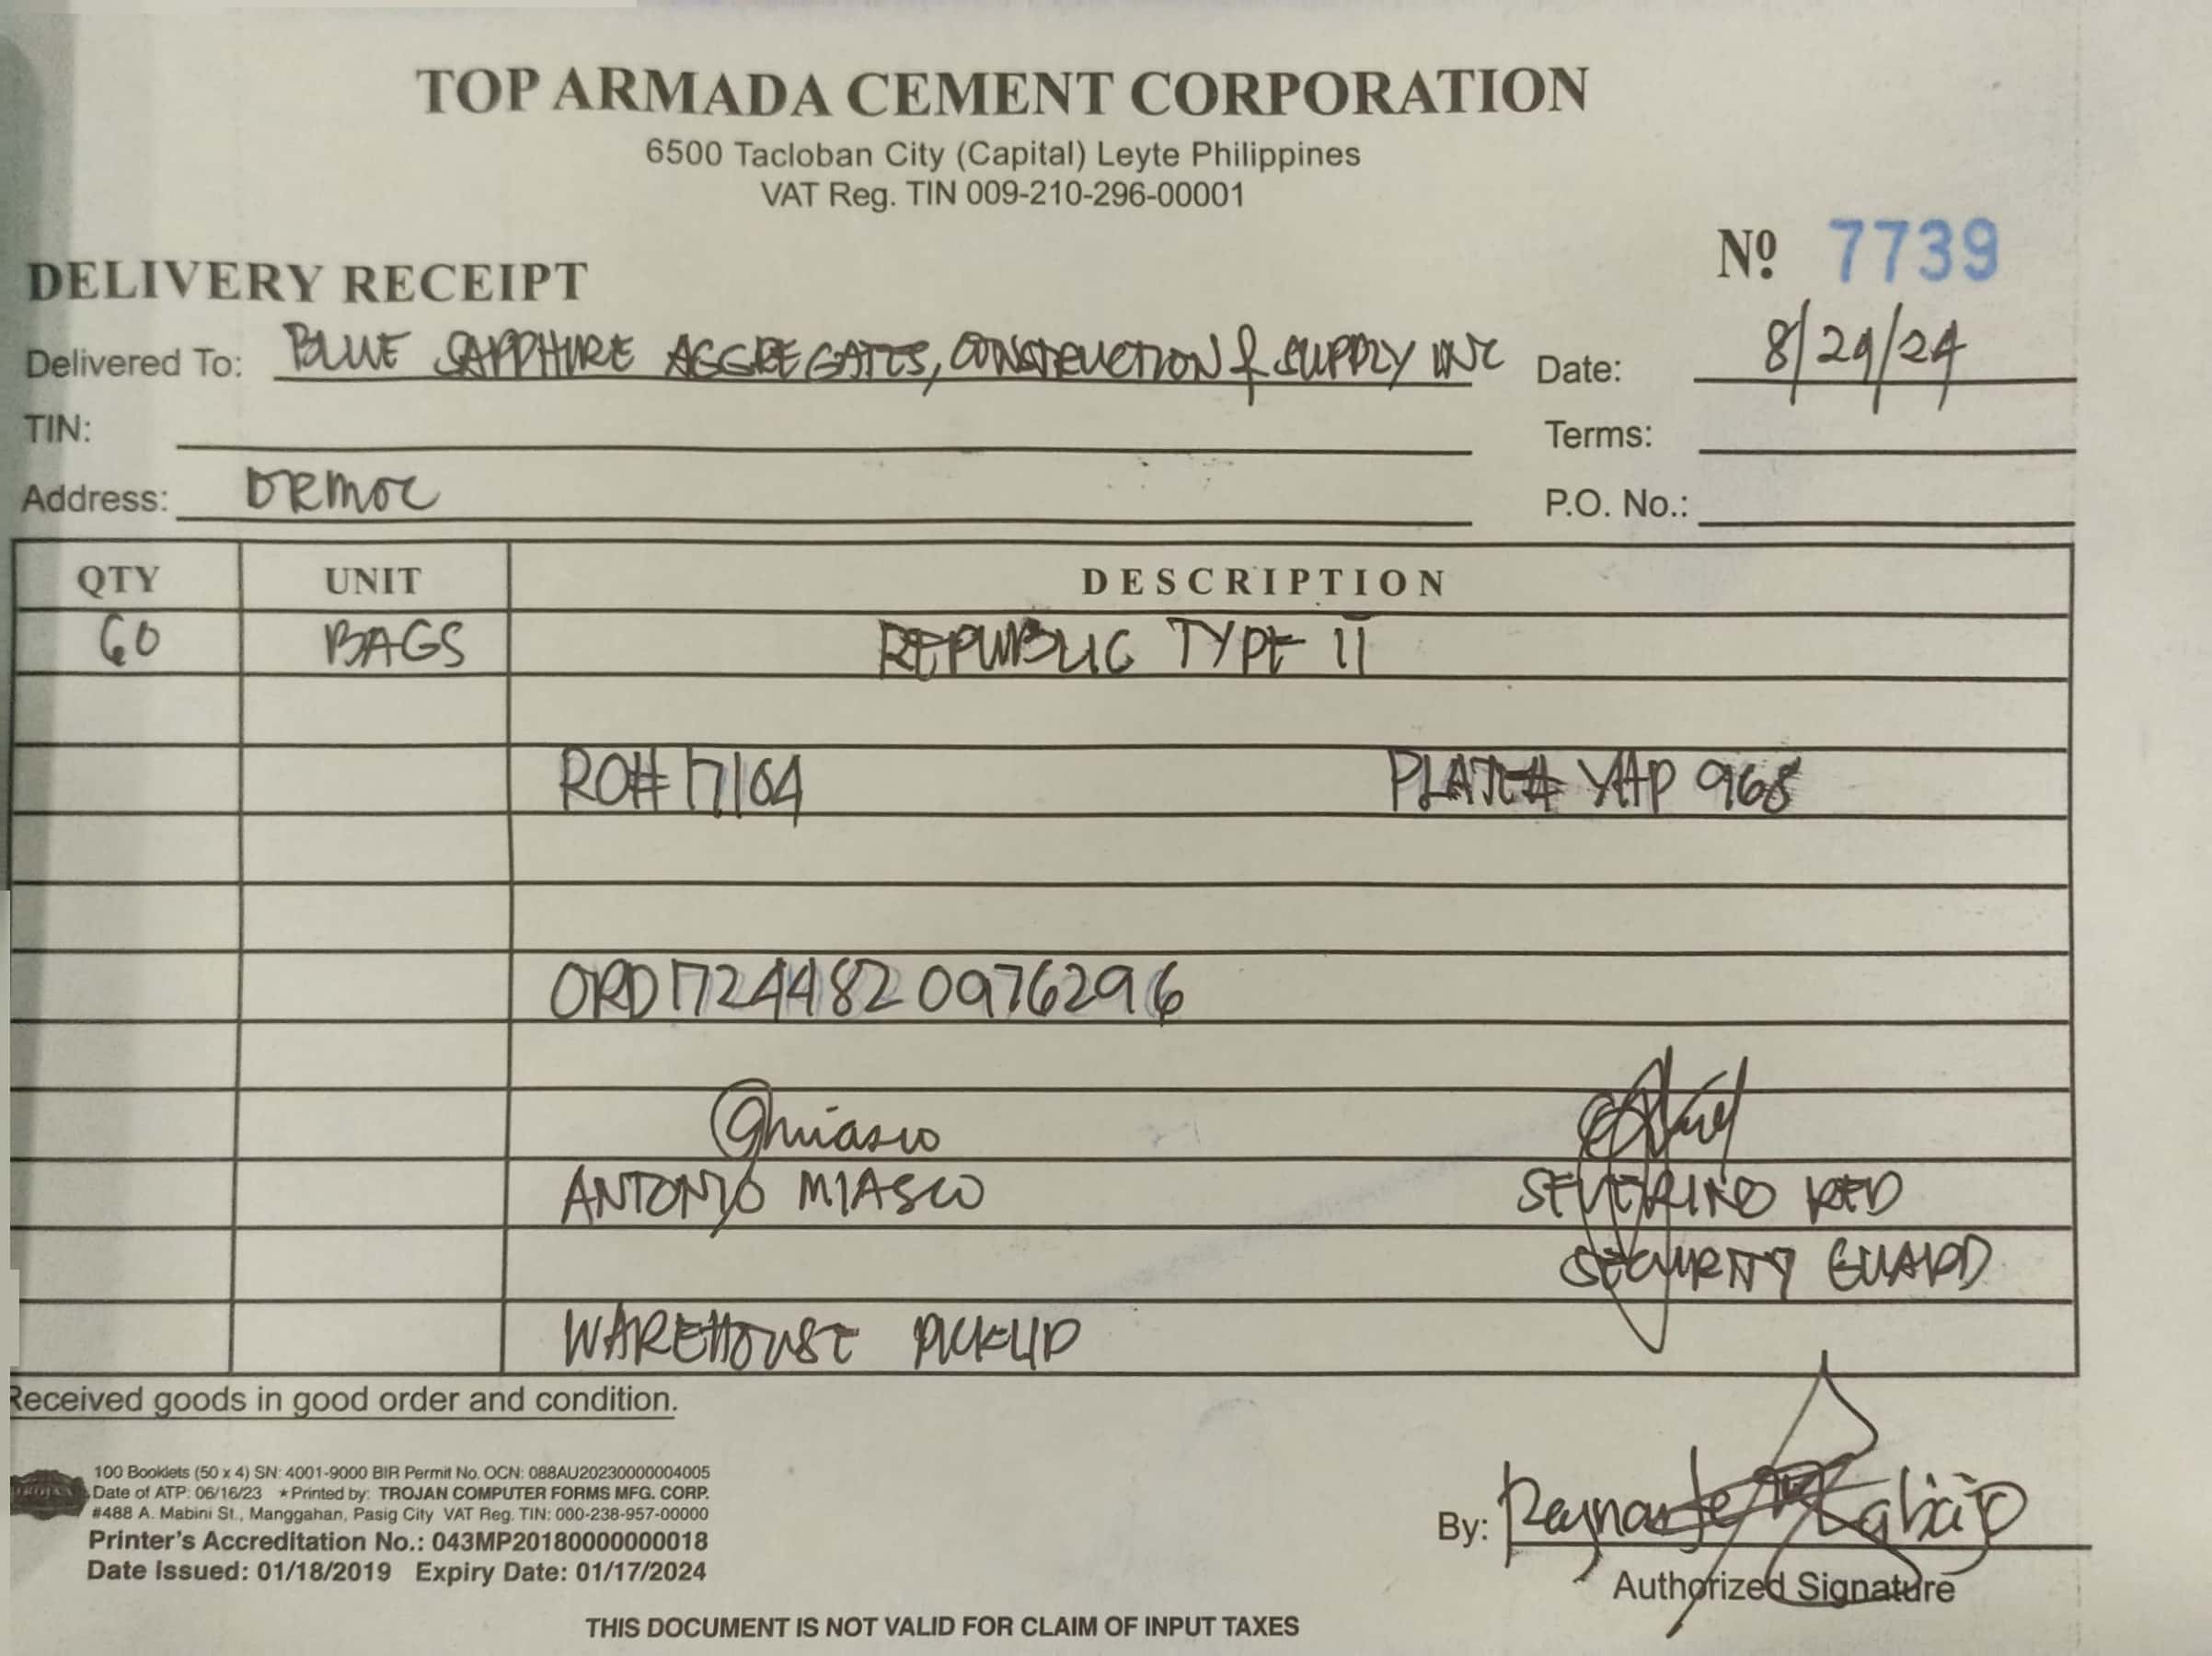 TOP ARMADA CEMENT CORPORATION
6500 Tacloban City (Capital) Leyte Philippines
VAT Reg. TIN 009-210-296-00001
Nº 7739
DELIVERY RECEIPT
Delivered To: BLUE SAPPHIRE AGGREGATES, CONSTRUCTION & SUPPLY INC Date: 8/29/24
TIN: Terms:
Address: ORMOC P.O. No.:
QTY UNIT DESCRIPTION
60 BAGS REPUBLIC TYPE II
RO# 17164 PLATE# YAP 968
ORD17244820976296
ANTONIO MIASCO SEVERINO RED
SECURITY GUARD
WAREHOUSE PICK-UP
Received goods in good order and condition.
100 Booklets (50 x 4) SN: 4001-9000 BIR Permit No. OCN: 088AU20230000004005
Date of ATP: 06/16/23 ★Printed by: TROJAN COMPUTER FORMS MFG. CORP.
#488 A. Mabini St., Manggahan, Pasig City VAT Reg. TIN: 000-238-957-00000
Printer's Accreditation No.: 043MP20180000000018
Date Issued: 01/18/2019 Expiry Date: 01/17/2024
By: Reynante
Authorized Signature
THIS DOCUMENT IS NOT VALID FOR CLAIM OF INPUT TAXES